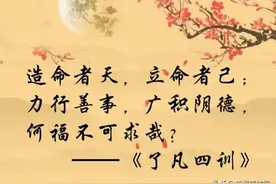 造命者天，立命者己；
力行善事，广积阴德，
何福不可求哉？
——《了凡四训》